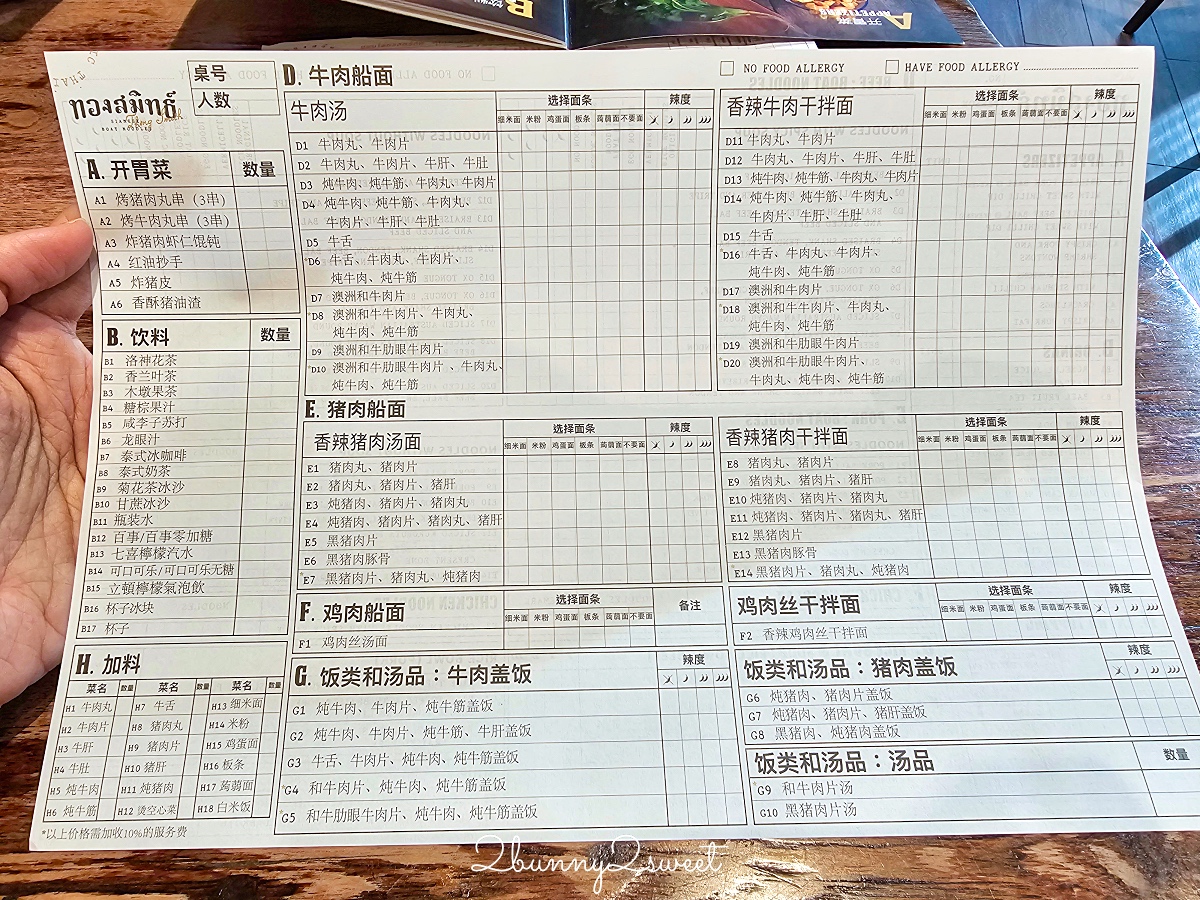 B
A 开胃菜
APPETIZERS
THAI
ทองสมิทธ์
Thong Smith
SIAMESE
BOAT NOODLES
桌号
人数
NO FOOD ALLERGY
HAVE FOOD ALLERGY
A. 开胃菜 数量
A1 烤猪肉丸串 (3串)
A2 烤牛肉丸串 (3串)
A3 炸猪肉虾仁馄饨
A4 红油抄手
A5 炸猪皮
A6 香酥猪油渣
B. 饮料 数量
B1 洛神花茶
B2 香兰叶茶
B3 木墩果茶
B4 糖棕果汁
B5 咸李子苏打
B6 龙眼汁
B7 泰式冰咖啡
B8 泰式奶茶
B9 菊花茶冰沙
B10 甘蔗冰沙
B11 瓶装水
B12 百事/百事零加糖
B13 七喜檸檬汽水
B14 可口可乐/可口可乐无糖
B15 立頓檸檬氣泡飲
B16 杯子冰块
B17 杯子
H. 加料
菜名 数量 菜名 数量 菜名 数量
H1 牛肉丸 H7 牛舌 H13 细米面
H2 牛肉片 H8 猪肉丸 H14 米粉
H3 牛肝 H9 猪肉片 H15 鸡蛋面
H4 牛肚 H10 猪肝 H16 板条
H5 炖牛肉 H11 炖猪肉 H17 蒟蒻面
H6 炖牛筋 H12 烫空心菜 H18 白米饭
*以上价格需加收10%的服务费
D. 牛肉船面
牛肉汤 选择面条 辣度
细米面 米粉 鸡蛋面 板条 蒟蒻面 不要面
D1 牛肉丸、牛肉片
D2 牛肉丸、牛肉片、牛肝、牛肚
D3 炖牛肉、炖牛筋、牛肉丸、牛肉片
D4 炖牛肉、炖牛筋、牛肉丸、
牛肉片、牛肝、牛肚
D5 牛舌
*D6 牛舌、牛肉丸、牛肉片、
炖牛肉、炖牛筋
D7 澳洲和牛肉片
*D8 澳洲和牛牛肉片、牛肉丸、
炖牛肉、炖牛筋
D9 澳洲和牛肋眼牛肉片
*D10 澳洲和牛肋眼牛肉片 、牛肉丸、
炖牛肉、炖牛筋
香辣牛肉干拌面 选择面条 辣度
细米面 米粉 鸡蛋面 板条 蒟蒻面 不要面
D11 牛肉丸、牛肉片
D12 牛肉丸、牛肉片、牛肝、牛肚
D13 炖牛肉、炖牛筋、牛肉丸、牛肉片
D14 炖牛肉、炖牛筋、牛肉丸、
牛肉片、牛肝、牛肚
D15 牛舌
*D16 牛舌、牛肉丸、牛肉片、
炖牛肉、炖牛筋
D17 澳洲和牛肉片
*D18 澳洲和牛牛肉片、牛肉丸、
炖牛肉、炖牛筋
D19 澳洲和牛肋眼牛肉片
*D20 澳洲和牛肋眼牛肉片、
牛肉丸、炖牛肉、炖牛筋
E. 猪肉船面
香辣猪肉汤面 选择面条 辣度
细米面 米粉 鸡蛋面 板条 蒟蒻面 不要面
E1 猪肉丸、猪肉片
E2 猪肉丸、猪肉片、猪肝
E3 炖猪肉、猪肉片、猪肉丸
E4 炖猪肉、猪肉片、猪肉丸、猪肝
E5 黑猪肉片
E6 黑猪肉豚骨
*E7 黑猪肉片、猪肉丸、炖猪肉
香辣猪肉干拌面 选择面条 辣度
细米面 米粉 鸡蛋面 板条 蒟蒻面 不要面
E8 猪肉丸、猪肉片
E9 猪肉丸、猪肉片、猪肝
E10 炖猪肉、猪肉片、猪肉丸
E11 炖猪肉、猪肉片、猪肉丸、猪肝
E12 黑猪肉片
E13 黑猪肉豚骨
*E14 黑猪肉片、猪肉丸、炖猪肉
F. 鸡肉船面 选择面条 备注
细米面 米粉 鸡蛋面 板条 蒟蒻面 不要面
F1 鸡肉丝汤面
鸡肉丝干拌面 选择面条 辣度
细米面 米粉 鸡蛋面 板条 蒟蒻面 不要面
F2 香辣鸡肉丝干拌面
G. 饭类和汤品：牛肉盖饭 辣度
G1 炖牛肉、牛肉片、炖牛筋盖饭
G2 炖牛肉、牛肉片、炖牛筋、牛肝盖饭
G3 牛舌、牛肉片、炖牛肉、炖牛筋盖饭
*G4 和牛肉片、炖牛肉、炖牛筋盖饭
*G5 和牛肋眼牛肉片、炖牛肉、炖牛筋盖饭
饭类和汤品：猪肉盖饭 辣度
G6 炖猪肉、猪肉片盖饭
G7 炖猪肉、猪肉片、猪肝盖饭
G8 黑猪肉、炖猪肉盖饭
饭类和汤品：汤品 数量
*G9 和牛肉片汤
G10 黑猪肉片汤
2bunny2sweet